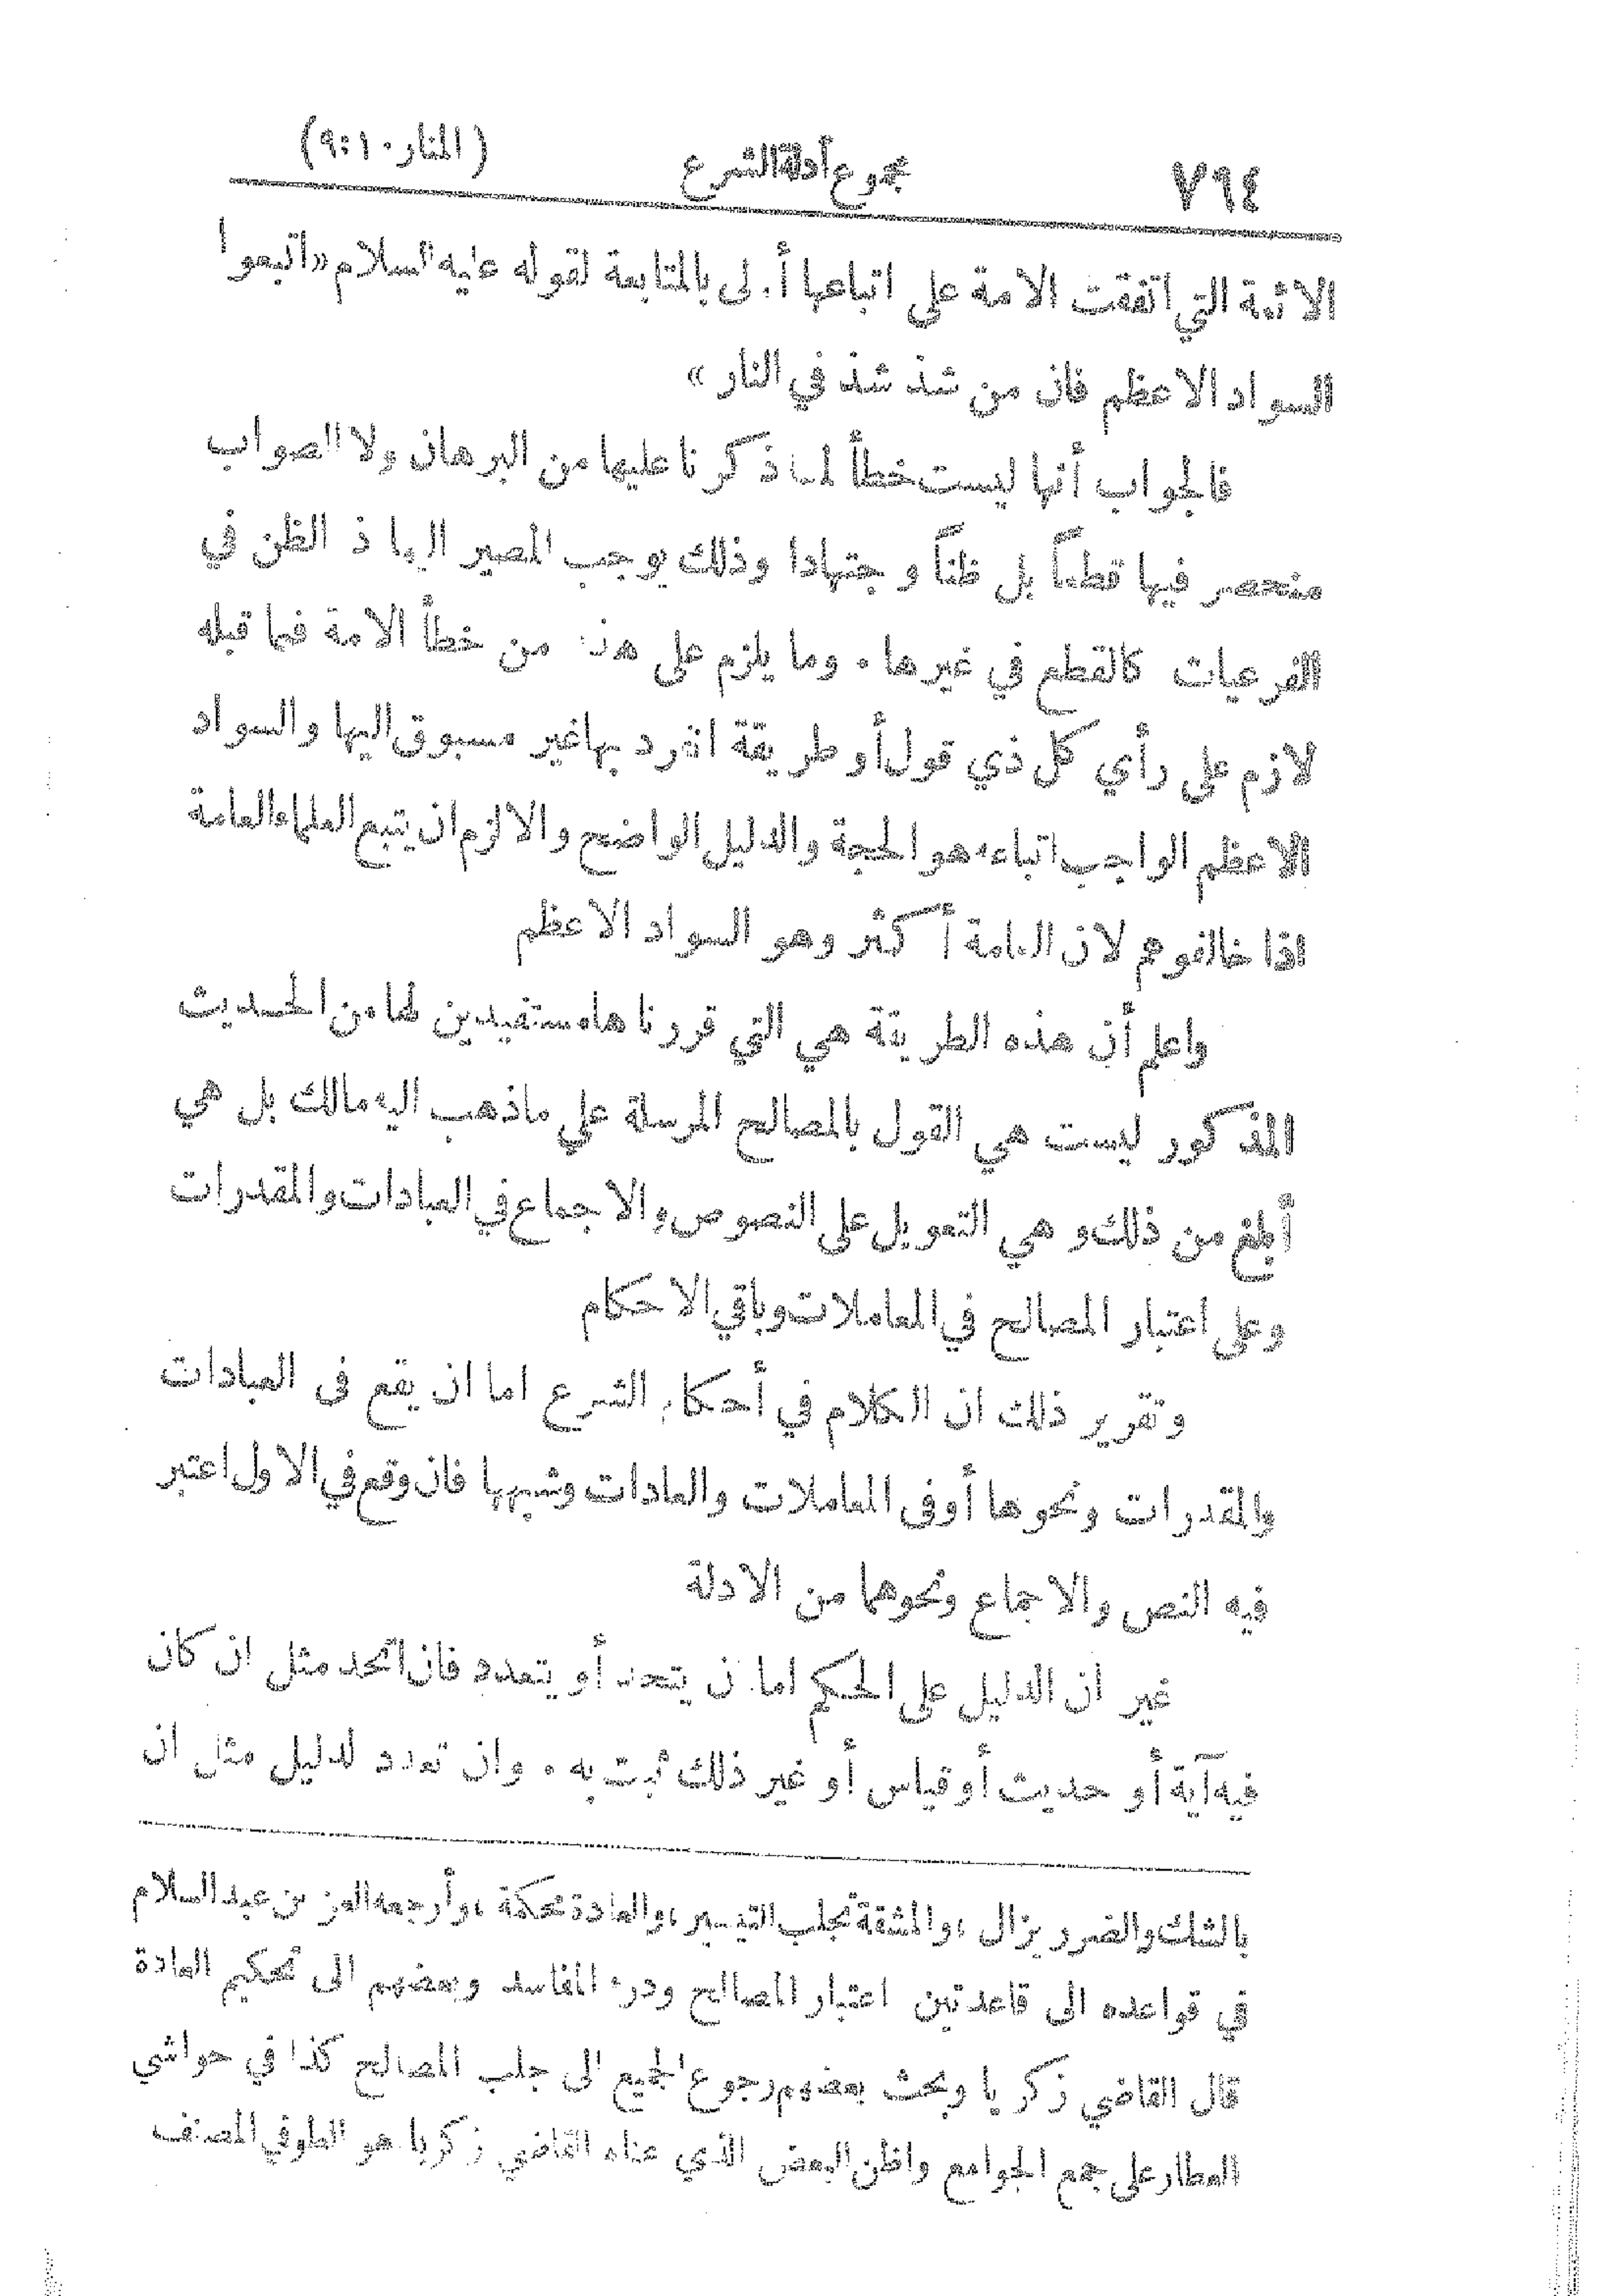 ٧٩٤ مجموع أدلة الشرع (المنار ١٠:٩)
الائمة التي اتفقت الامة على اتباعها أولى بالمتابعة لقوله عليه السلام «اتبعوا
السواد الاعظم فان من شذ شذ في النار»
فالجواب أنها ليست خطأ لما ذكرنا عليها من البرهان ولا الصواب
منحصر فيها قطعاً بل ظناً واجتهادا وذلك يوجب المصير اليها اذ الظن في
الفرعيات كالقطع في غيرها . وما يلزم على هذا من خطأ الامة فيما قبله
لازم على رأي كل ذي قول أو طريقة انفرد بها غير مسبوق اليها والسواد
الاعظم الواجب اتباعه هو الحجة والدليل الواضح والا لزم ان يتبع العلماء العامة
اذا خالفوهم لان العامة أكثر وهو السواد الاعظم
واعلم أن هذه الطريقة هي التي قررناها مستفيدين لها من الحديث
المذكور ليست هي القول بالمصالح المرسلة على ماذهب اليه مالك بل هي
أبلغ من ذلك وهي التعويل على النصوص والاجماع في العبادات والمقدرات
وعلى اعتبار المصالح في المعاملات وباقي الاحكام
وتقرير ذلك ان الكلام في أحكام الشرع اما ان يقع في العبادات
والمقدرات ونحوها أو في المعاملات والعادات وشبهها فان وقع في الاول اعتبر
فيه النص والاجماع ونحوهما من الادلة
غير ان الدليل على الحكم اما ان يتحد أو يتعدد فان اتحد مثل ان كان
فيه آية أو حديث أو قياس أو غير ذلك ثبت به . وان تعدد الدليل مثل ان
بالشك والضرر يزال ، والمشقة تجلب التيسير ، والعادة محكمة ، وأرجعه العز بن عبد السلام
في قواعده الى قاعدتين اعتبار المصالح ودرء المفاسد وبعضهم الى تحكيم العادة
قال القاضي زكريا وبحث بعضهم رجوع الجميع الى جلب المصالح كذا في حواشي
العطار على جمع الجوامع واظن البعض الذي عناه القاضي زكريا هو الطوفي المصنف